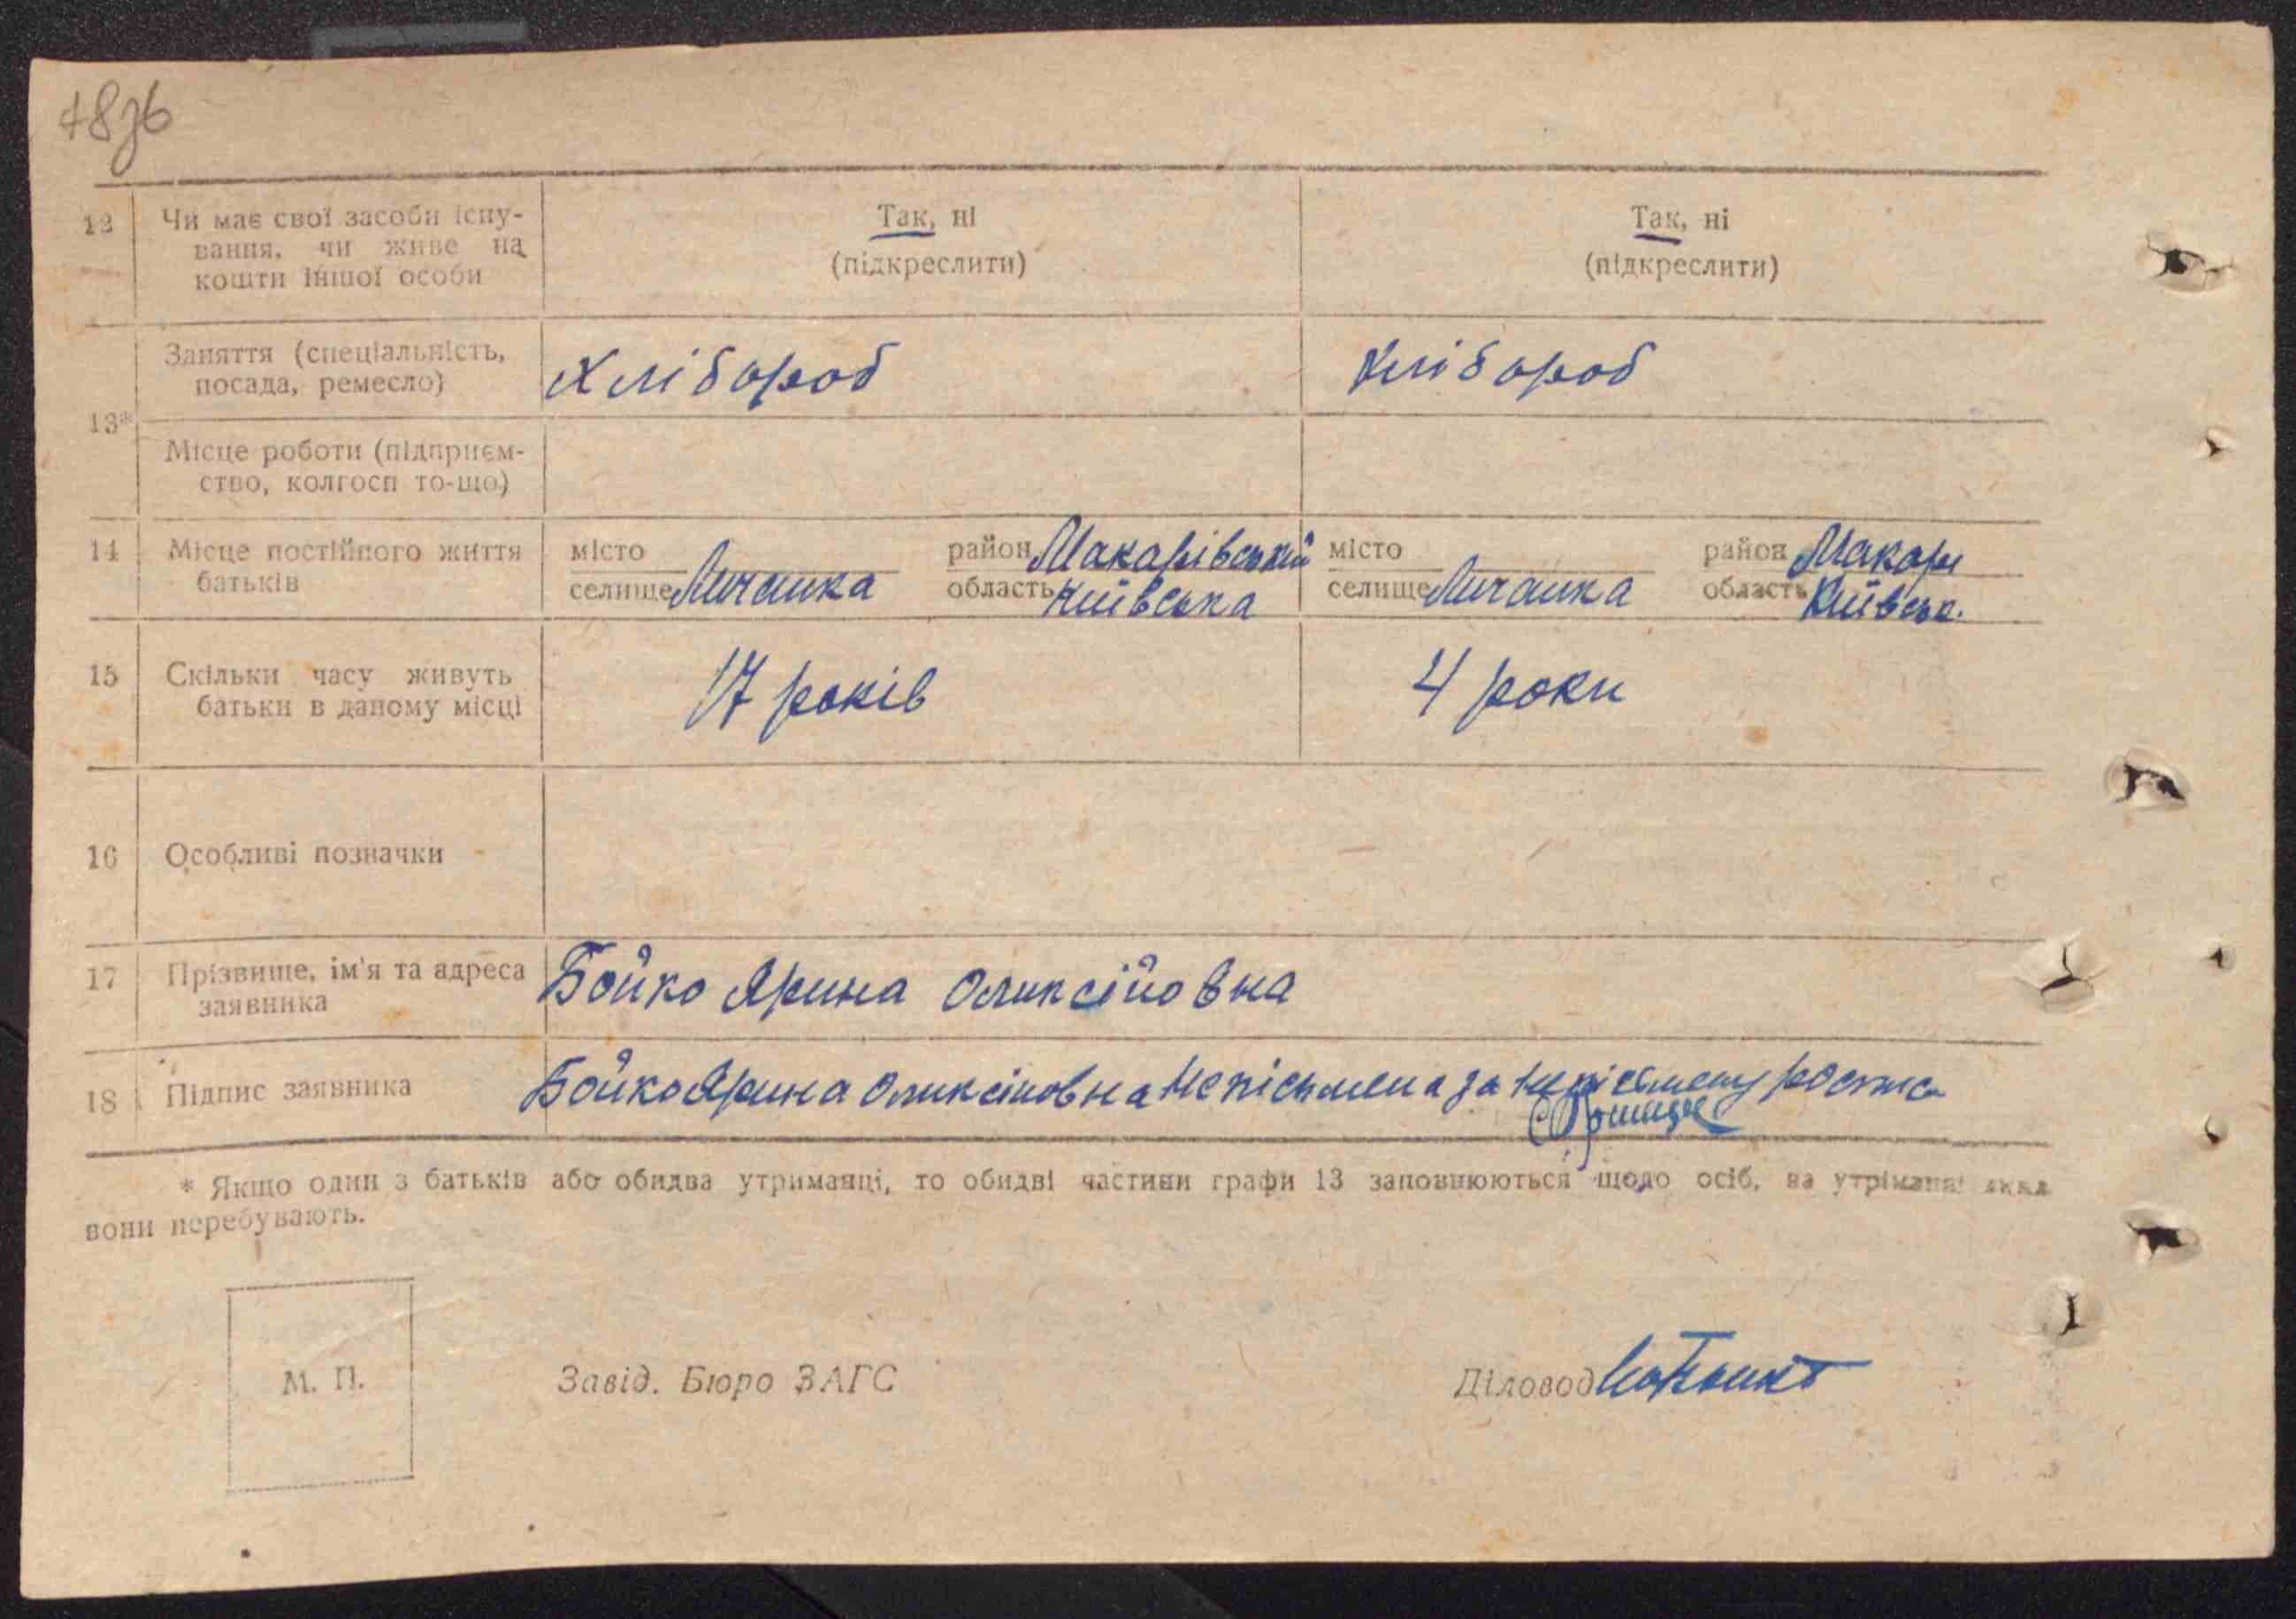 78зб
12 Чи має свої засоби існу- Так, ні Так, ні
вання, чи живе на (підкреслити) (підкреслити)
кошти іншої особи
13* Заняття (спеціальність, Хлібороб Хлібороб
посада, ремесло)
Місце роботи (підприєм-
ство, колгосп то-що)
14 Місце постійного життя місто район Макарівський місто район Макарі
батьків селище Личанка область Київська селище Личанка область Київськ.
15 Скільки часу живуть 17 років 4 роки
батьки в даному місці
16 Особливі позначки
17 Прізвище, ім'я та адреса Бойко Ярина Оликсійовна
заявника
18 Підпис заявника Бойко Ярина Оликсіиовна Непісьмена за
* Якщо один з батьків або обидва утриманці, то обидві частини графи 13 заповнюються щодо осіб, на утріманні яких
вони перебувають.
М. П. Завід. Бюро ЗАГС Діловод